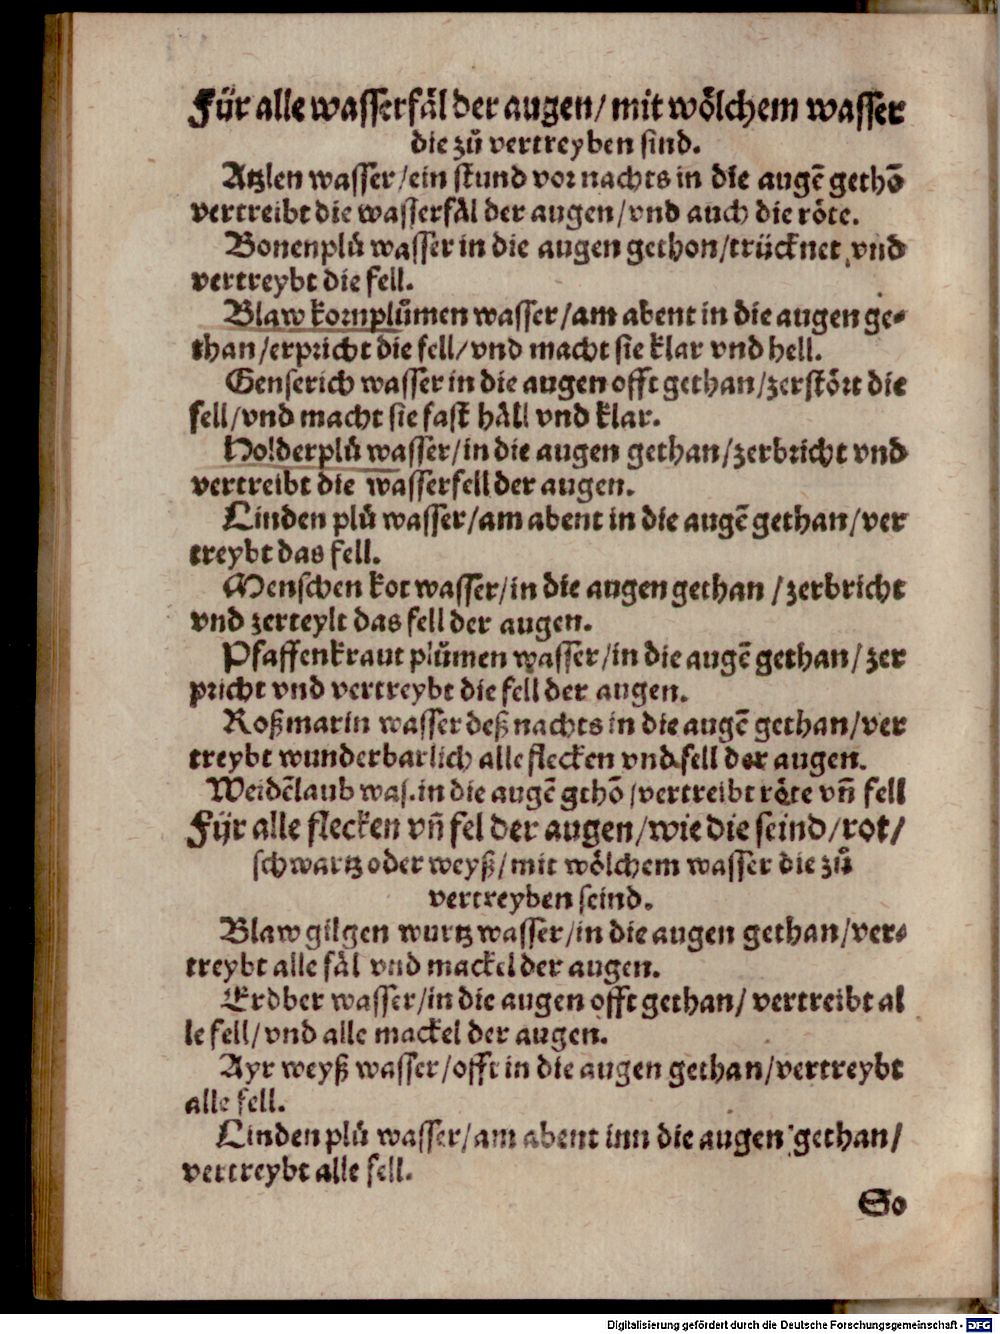 Für alle wasserfäl der augen/ mit wölchem wasser
die zů vertreyben sind.
Atzlen wasser/ein stund vor nachts in die augē gethō
vertreibt die wasserfäl der augen/vnd auch die röte.
Bonenplů wasser in die augen gethon/trücknet vnd
vertreybt die fell.
Blaw kornplůmen wasser/am abent in die augen ge-
than/erpricht die fell/vnd macht sie klar vnd hell.
Genserich wasser in die augen offt gethan/zerstört die
fell/vnd macht sie fast häll vnd klar.
Holderplů wasser/in die augen gethan/zerbricht vnd
vertreibt die wasserfell der augen.
Linden plů wasser/am abent in die augē gethan/ver
treybt das fell.
Menschen kot wasser/in die augen gethan /zerbricht
vnd zerteylt das fell der augen.
Pfaffenkraut plůmen wasser/in die augē gethan/ zer
pricht vnd vertreybt die fell der augen.
Roßmarin wasser deß nachts in die augē gethan/ver
treybt wunderbarlich alle flecken vnd fell der augen.
Weidēlaub was.in die augē gthō /vertreibt röte vñ fell
Für alle flecken vñ fel der augen/wie die seind/rot/
schwartz oder weyß/mit wölchem wasser die zů
vertreyben seind.
Blaw gilgen wurtz wasser/in die augen gethan/ver-
treybt alle fäl vnd mackel der augen.
Erdber wasser/in die augen offt gethan/ vertreibt al
le fell/vnd alle mackel der augen.
Ayr weyß wasser/offt in die augen gethan/vertreybt
alle fell.
Linden plů wasser/am abent inn die augen gethan/
vertreybt alle fell.
So
Digitalisierung gefördert durch die Deutsche Forschungsgemeinschaft - DFG